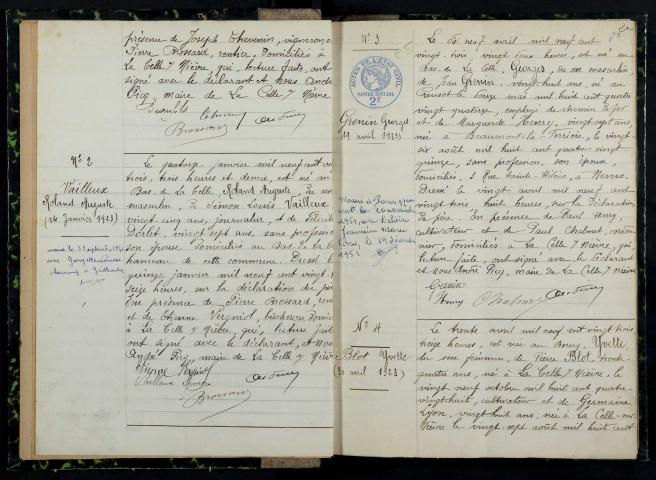 présence de Joseph Thevenin, vigneron et
Pierre Brossard, rentier, domiciliés à
La Celle s/ Nièvre qui, lecture faite, ont
signé avec le déclarant et Nous André
Picq, maire de La Celle s/ Nièvre
Brossard
No 2
Vailleux
Roland Auguste
(14 Janvier 1923)
Le quatorze janvier mil neuf cent
trois, trois heures et demie, est né au
Bas de La Celle, Roland Auguste, du sexe
masculin, de Simon Louis Vailleux
vingt cinq ans, journalier, et de
Dorlet, vingt sept ans, sans profession
son épouse domiciliés au Bas de la Celle
hameau de cette commune. Dressé le
quinze janvier mil neuf cent vingt
seize heures, sur la déclaration du père
En présence de Pierre Brossard, rentier
et de Etienne Vergniol, bûcheron domiciliés
à La Celle s/ Nièvre, qui, lecture faite
ont signé avec le déclarant, et Nous
André Picq, maire de La Celle s/ Nièvre
Etienne Vergniol
Vailleux Simon
Brossard
No 3
ACTES DE L'ETAT CIVIL
PAPIER SPECIAL
2F
Grenin Georges
(19 avril 1923)
Le dix neuf avril mil neuf cent
vingt trois, vingt deux heures, est né au
Bas de La Celle, Georges, du sexe masculin,
de Jean Grenin, vingt huit ans, né au
Creusot le treize mai mil huit cent quatre
vingt quatorze, employé de chemin de fer
et de Marguerite Henry, vingt sept ans,
née à Beaumont la Ferrière, le vingt
six août mil huit cent quatre vingt
quinze, sans profession, son épouse,
domiciliés, 3 Rue Sainte Hélène, à Nevers.
Dressé le vingt avril mil neuf cent
vingt trois huit heures, sur la déclaration
du père. En présence de Paul Henry,
cultivateur et de Paul Chalumot, cordon
nier, domiciliés à La Celle s/ Nièvre, qui
lecture faite, ont signé avec le déclarant
et Nous André Picq, maire de La Celle s/ Nièvre
Grenin
Henry
No 4
Blot Yvette
(30 avril 1923)
Le trente avril mil neuf cent vingt trois
seize heures, est née au Bourg, Yvette
du sexe féminin, de Pierre Blot, trente
quatre ans, né à La Celle s/ Nièvre, le
vingt neuf octobre mil huit cent quatre
vingt huit, cultivateur et de Germaine
Lyon, vingt huit ans, née à La Celle sur
Nièvre le vingt sept août mil huit cent